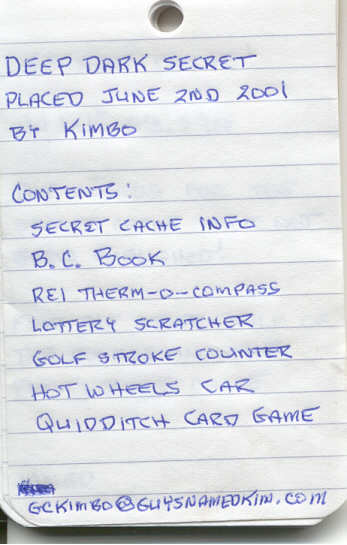 DEEP DARK SECRET
PLACED JUNE 2ND 2001
BY KIMBO
CONTENTS:
SECRET CACHE INFO
B.C. BOOK
REI THERM-O-COMPASS
LOTTERY SCRATCHER
GOLF STROKE COUNTER
HOT WHEELS CAR
QUIDDITCH CARD GAME
GCKIMBO@GUYSNAMEDKIM.COM